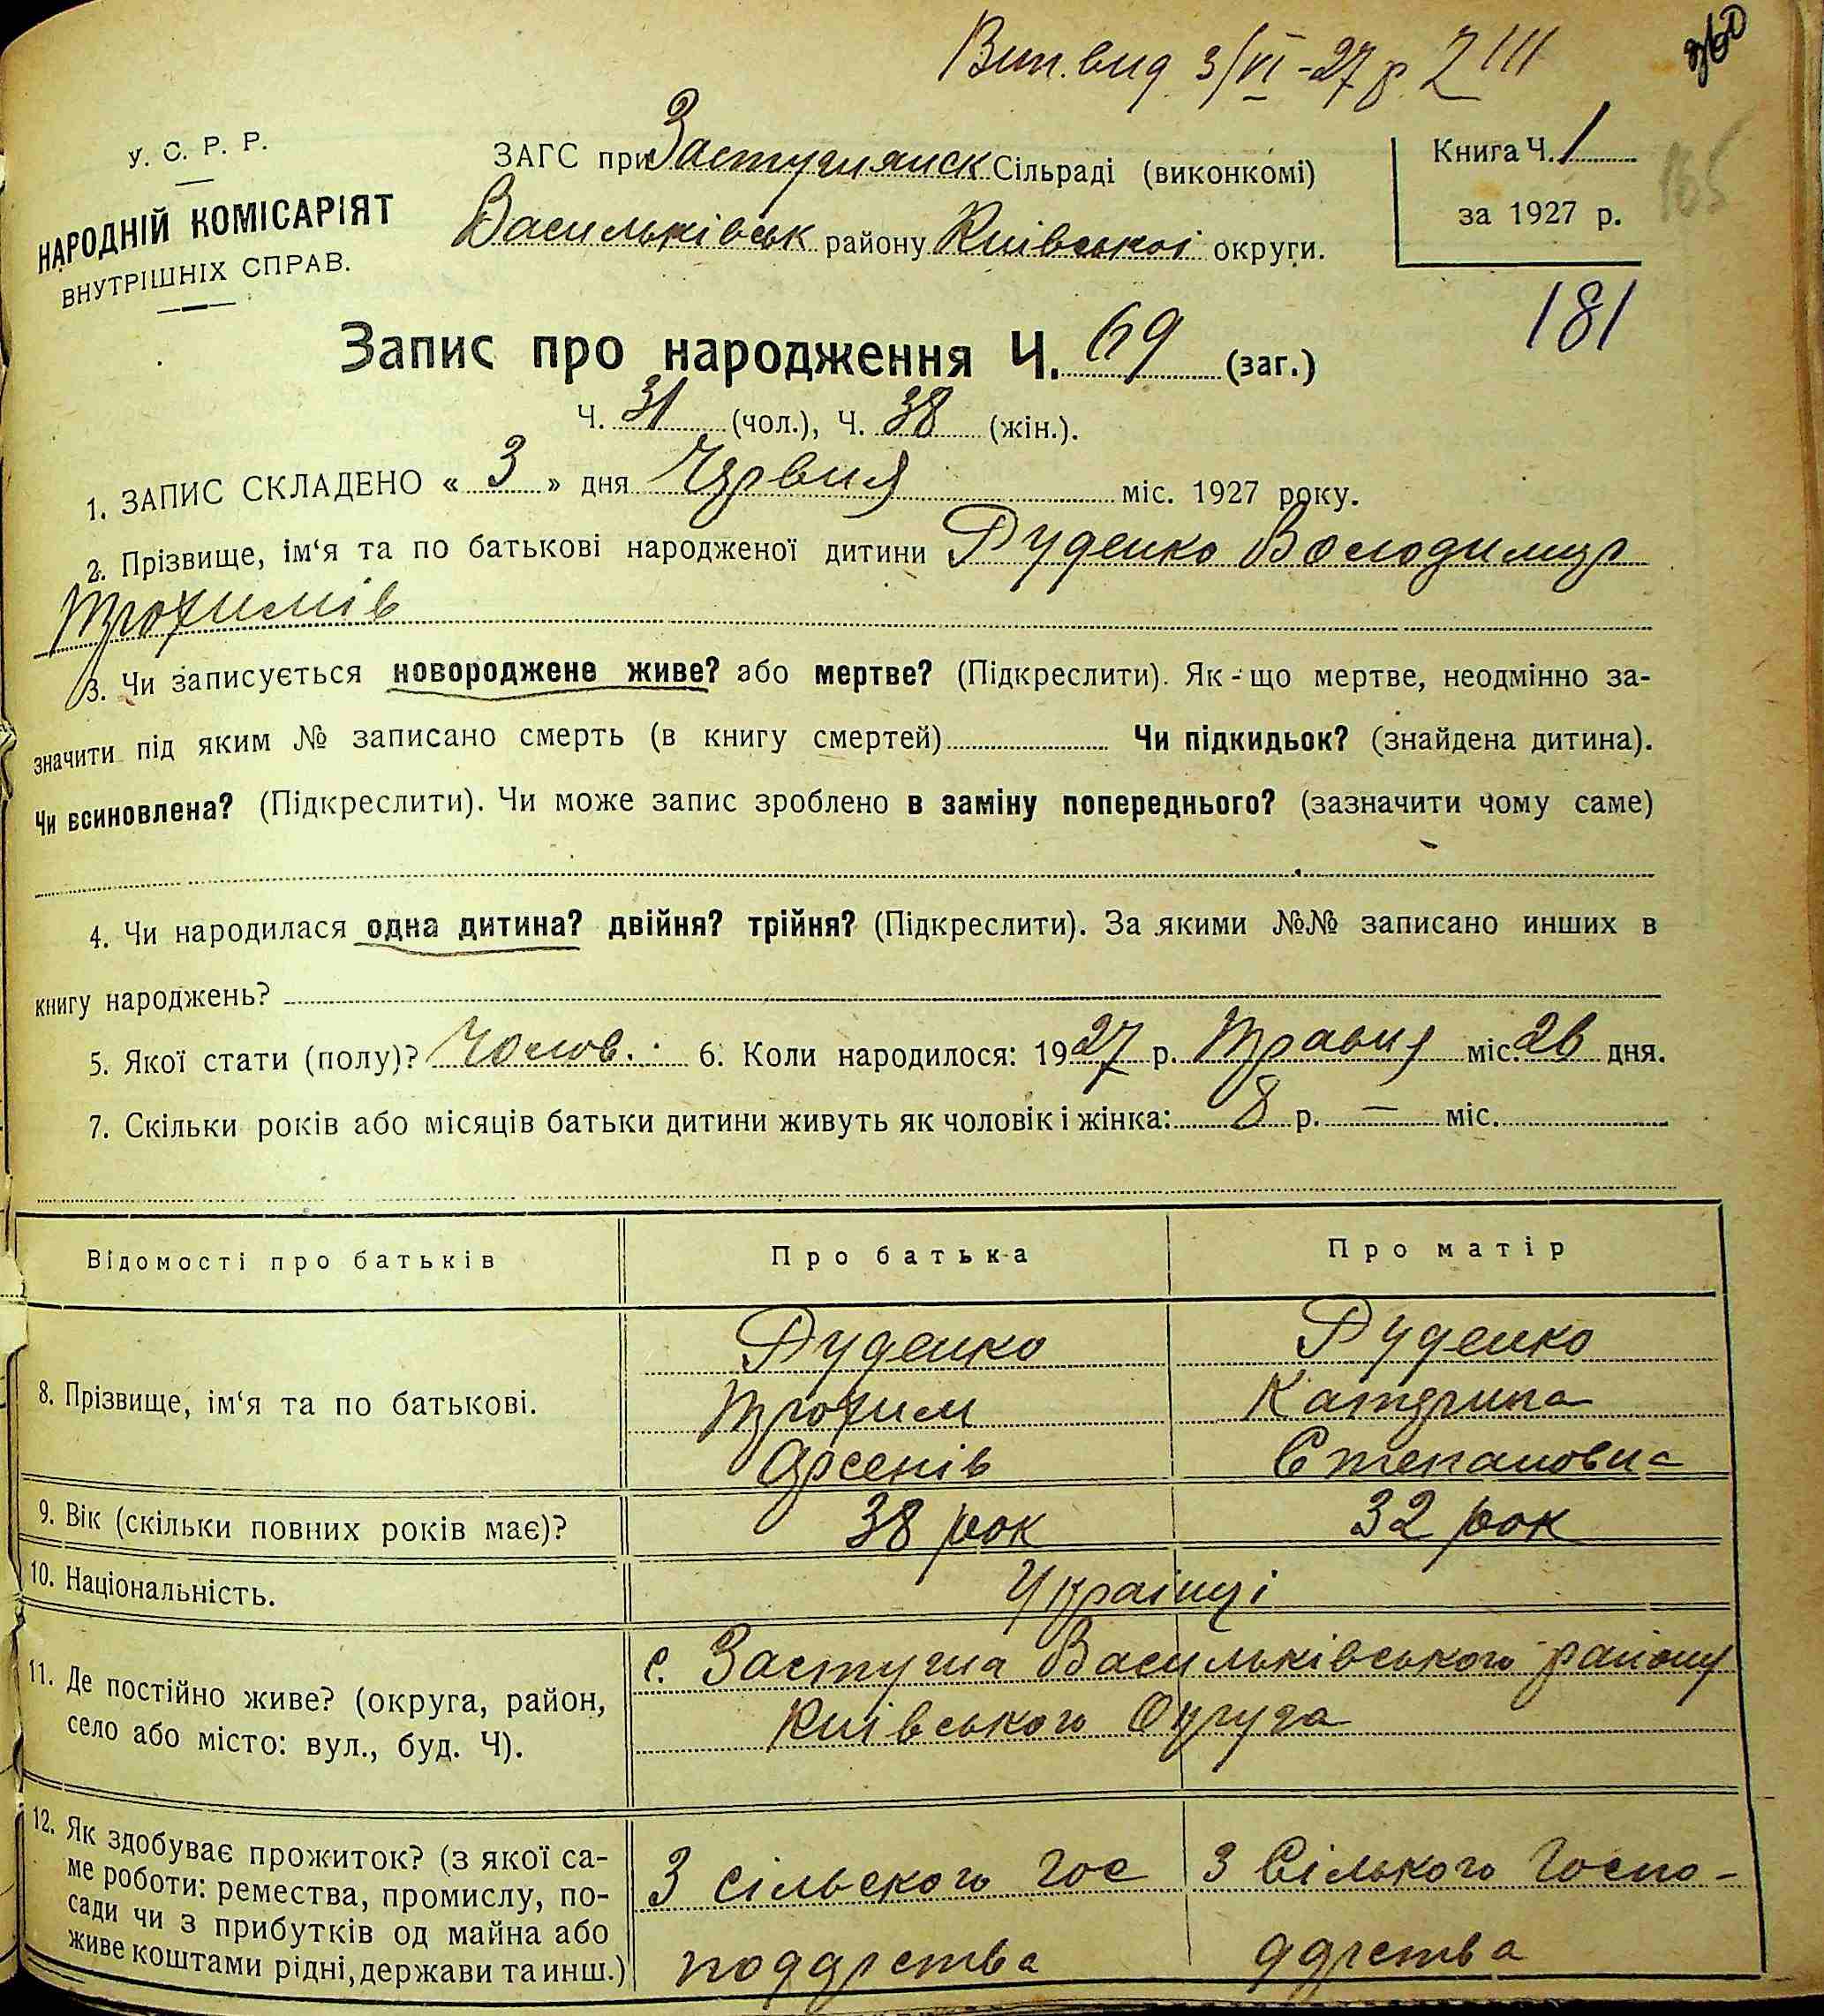 Вип. вид. 3/VI-27 р. Z III
У. С. Р. Р.
НАРОДНІЙ КОМІСАРІЯТ
ВНУТРІШНІХ СПРАВ.
ЗАГС при Застугнянск Сільраді (виконкомі)
Васильківськ району Київської округи.
Книга Ч. 1
за 1927 р.
165
181
Запис про народження Ч. 69 (заг.)
Ч. 31 (чол.), Ч. 38 (жін.).
1. ЗАПИС СКЛАДЕНО « 3 » дня Червня міс. 1927 року.
2. Прізвище, ім‘я та по батькові народженої дитини Руденко Володимир
Трохимів
3. Чи записується новороджене живе? або мертве? (Підкреслити). Як-що мертве, неодмінно за-
значити під яким № записано смерть (в книгу смертей) Чи підкидьок? (знайдена дитина).
Чи всиновлена? (Підкреслити). Чи може запис зроблено в заміну попереднього? (зазначити чому саме)
4. Чи народилася одна дитина? двійня? трійня? (Підкреслити). За якими №№ записано инших в
книгу народжень?
5. Якої стати (полу)? Чолов. 6. Коли народилося: 1927 р. Травня міс. 26 дня.
7. Скільки років або місяців батьки дитини живуть як чоловік і жінка: 8 р. — міс.
Відомості про батьків Про батька Про матір
8. Прізвище, ім‘я та по батькові.
Руденко
Трохим
Арсенів
Руденко
Катерина
Степановна
9. Вік (скільки повних років має)? 38 рок 32 рок
10. Національність. Українці
11. Де постійно живе? (округа, район,
село або місто: вул., буд. Ч).
с. Застугна Васильківського району
Київського Округа
12. Як здобуває прожиток? (з якої са-
ме роботи: ремества, промислу, по-
сади чи з прибутків од майна або
живе коштами рідні, держави та инш.)
З сільского гос
поддрства
З Сілького Госпо-
ддрства